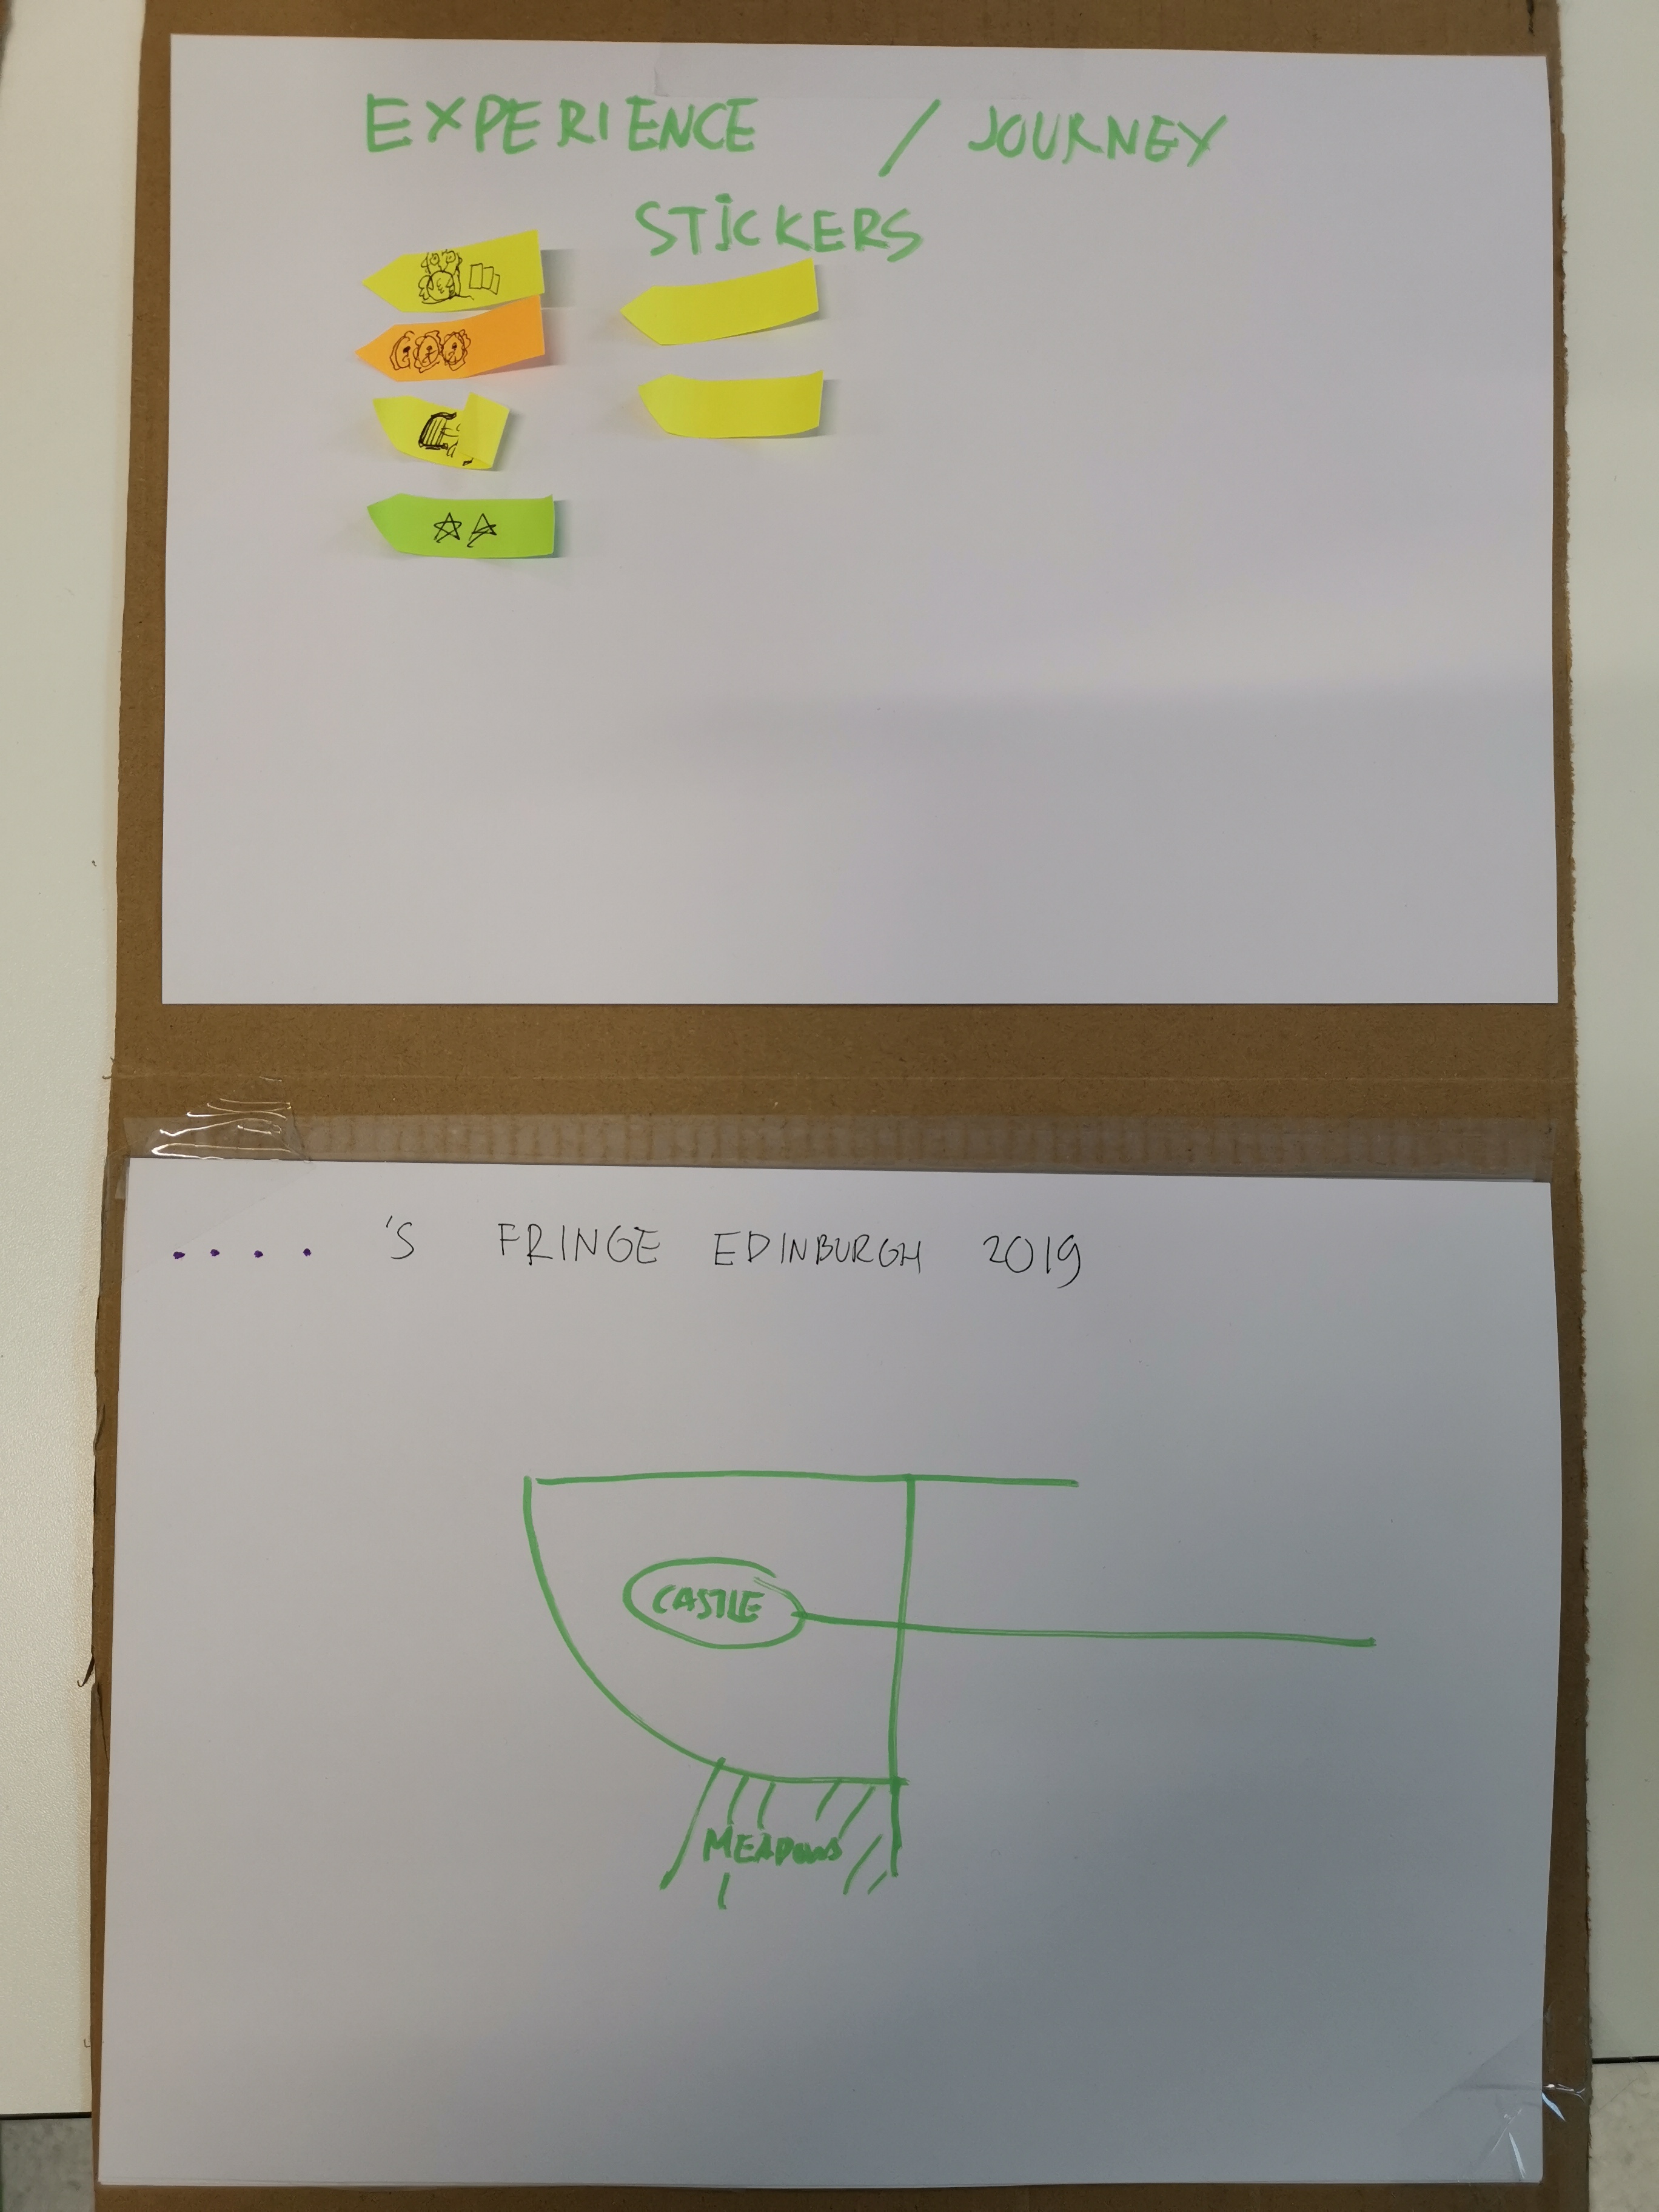 EXPERIENCE / JOURNEY
STICKERS
....'S FRINGE EDINBURGH 2019
CASTLE
MEADOWS